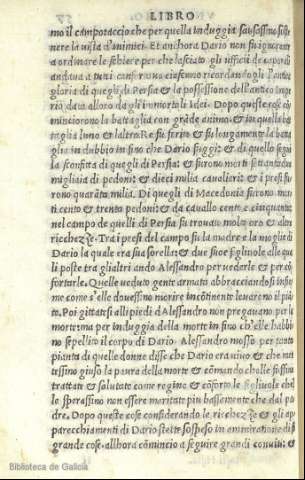 LIBRO
mo il campo raccio che per quella induggia sausossimo soste
nere la uista d'inimici. Et anchora Dario non fu ignorante
a ordinare le schiere per che lasciato gli ufficii de capitani
andaua a tutti confortando ciascuno ricordandogli l'antica
gloria di quegli di Persia & la possessione dell'antico impe
rio data alloro da gli immortali Idei. Dopo queste cose co
minciorono la battaglia con grãde animo, & in quella bat
taglia l'uno & l'altro Re fu ferito & fu longamente la batta
glia in dubbio in sino che Dario fuggi: & di quello segui
la sconfitta di quegli di Persia: & furono morti settantadua
migliaia di pedoni: & dieci milia cauallieri: & i presi fu
rono quarãta milia. Di quegli di Macedonia furono mor
ti cento & trenta pedoni: & da cauallo cento e cinquanta:
nel campo de quelli di Persia fu trouato molto oro & altre
ricchezze. Tra i presi del campo fu la madre e la moglie di
Dario la quale era sua sorella: & due sue figliuole alle qua
li poste tra gli altri ando Alessandro per uederle & per co
fortarle. Quelle ueduto gente armata abbracciandosi insie
me come s'elle douessimo morire incõtinente leuarono il piã
to. Poi gittatesi alli piedi d'Alessandro non pregauano per la
morte ma per induggia della morte in sino ch'elle habbi
no sepellito il corpo di Dario. Alessandro mosso per tanta
pianta di quelle donne disse che Dario era uiuo & che mit
tessino giuso la paura della morte & comando che le fossino
trattate & salutate come regine & cõforto le figliuole che
le sperassino non essere maritate piu bassamente che dal pa
dre. Dopo queste cose considerando le ricchezze & gli ap
parecchiamenti di Dario stette sospeso in amiratione di si
grande cose. allhora cõmincio a seguire grandi conuiti: &
Biblioteca de Galicia